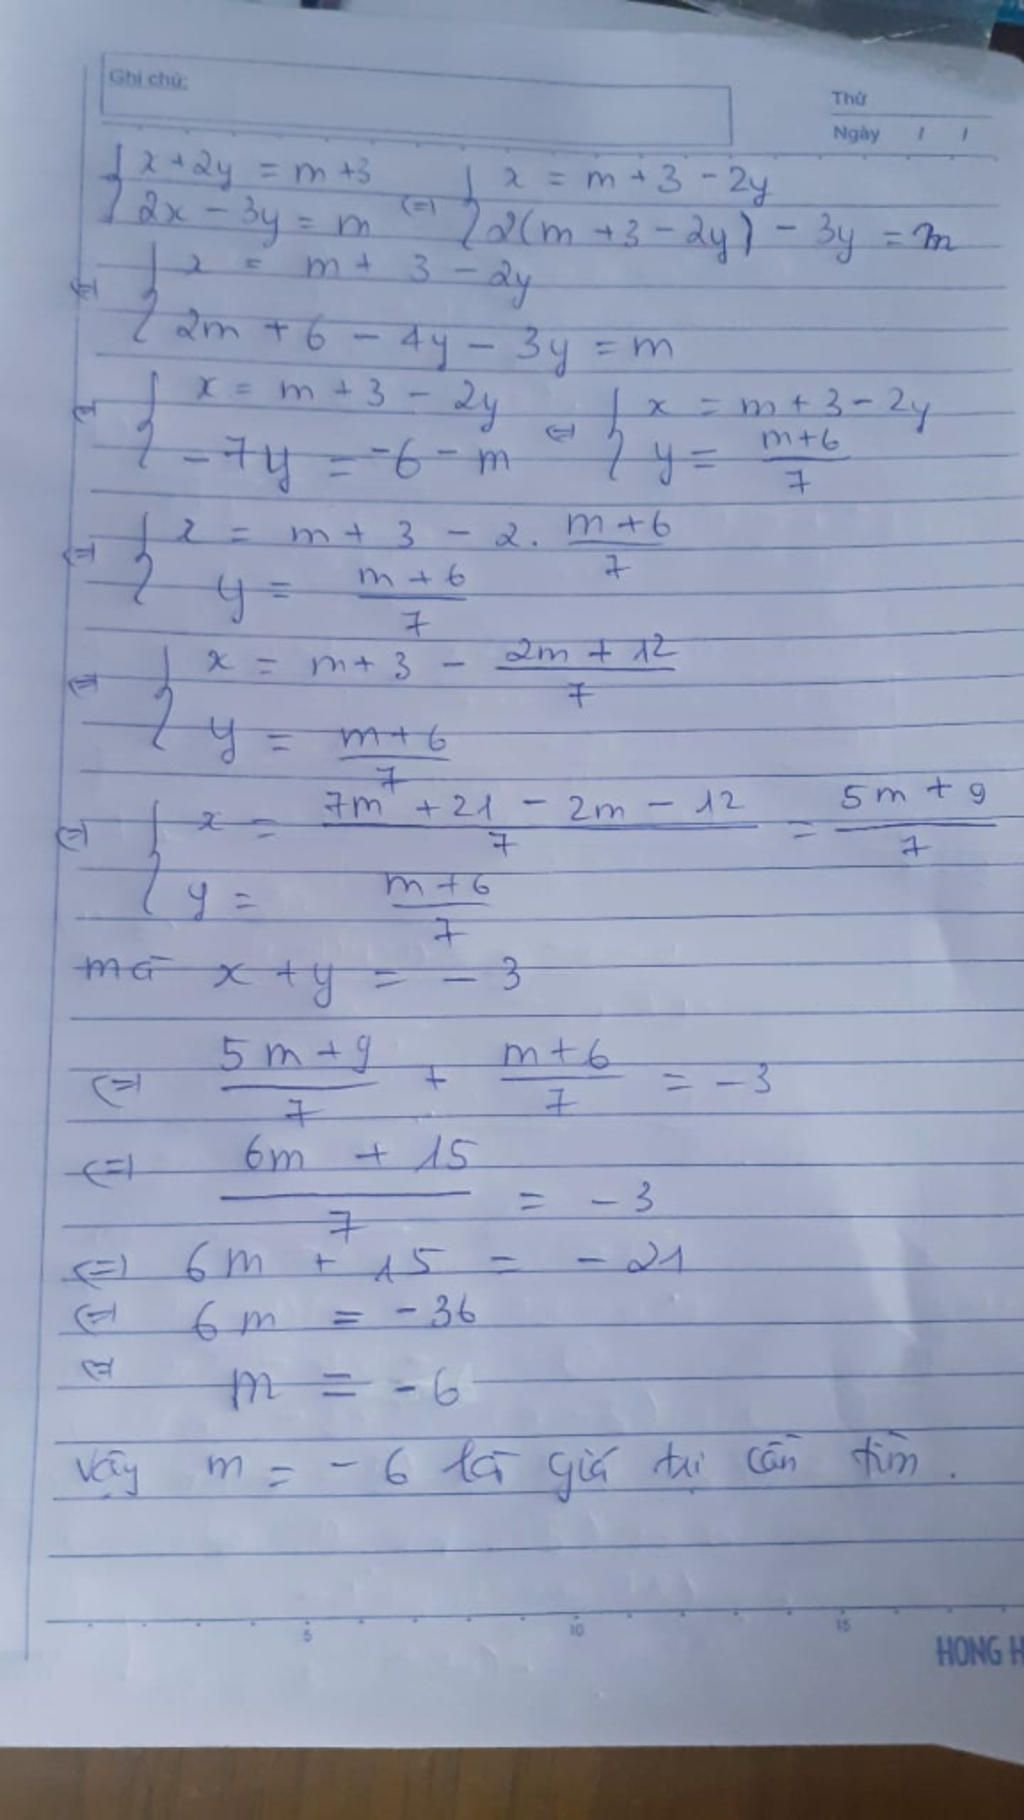 Ghi chú:
Thứ
Ngày / /
{ x + 2y = m + 3 (=) { x = m + 3 - 2y
{ 2x - 3y = m { 2(m + 3 - 2y) - 3y = m
(=) { x = m + 3 - 2y
{ 2m + 6 - 4y - 3y = m
(=) { x = m + 3 - 2y (=) { x = m + 3 - 2y
{ -7y = -6 - m { y = (m+6)/7
(=) { x = m + 3 - 2. (m+6)/7
{ y = (m+6)/7
(=) { x = m + 3 - (2m + 12)/7
{ y = (m+6)/7
(=) { x = (7m + 21 - 2m - 12)/7 = (5m + 9)/7
{ y = (m+6)/7
mà x + y = -3
(=) (5m + 9)/7 + (m+6)/7 = -3
(=) (6m + 15)/7 = -3
(=) 6m + 15 = -21
(=) 6m = -36
(=) m = -6
Vậy m = -6 là giá trị cần tìm.
5 10 15
HONG H